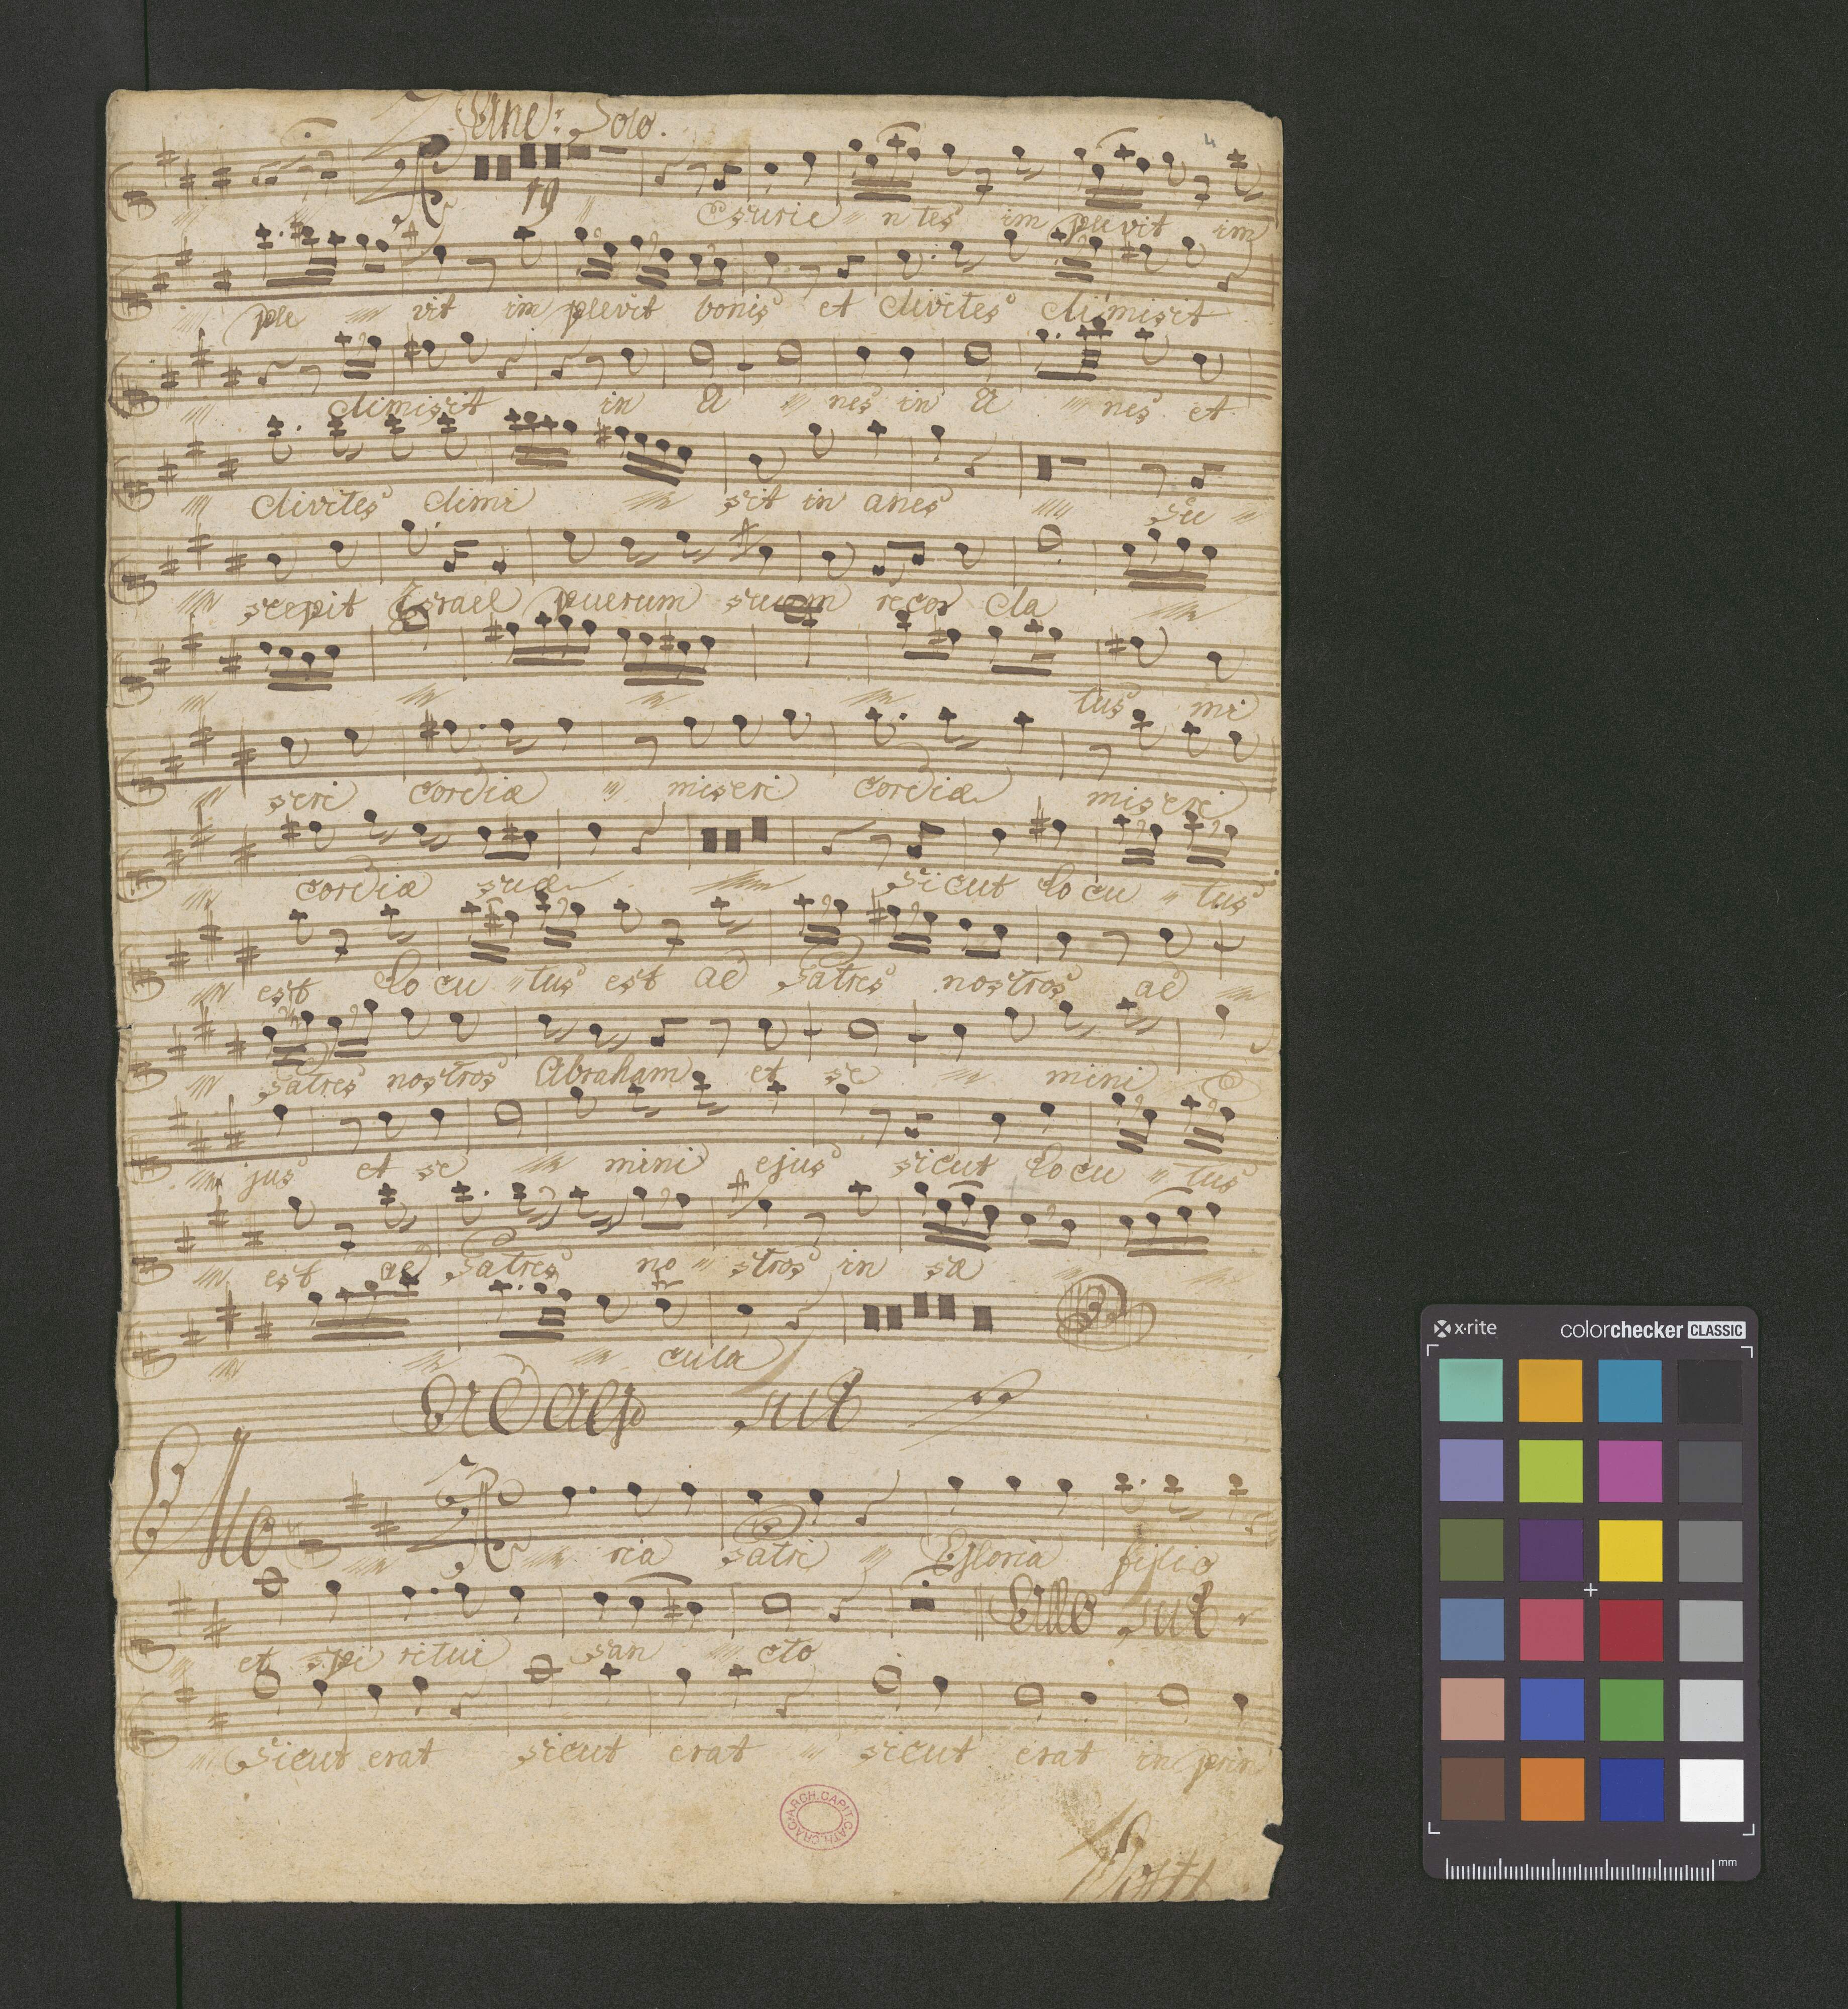 Solo.
19
Esurie n tes im plevit im
ple vit im plevit bonis et divites dimisit
dimisit in A nes in A nes et
divites dimi sit in anes Su
scepit Israel puerum suum recor da
tus mi
seri cordiæ miseri cordiæ miseri
cordiæ suæ sicut locu tus
est locu tus est ad Patres nostros ad
Patres nostros Abraham et se mini e
jus et se mini ejus sicut locu tus
est ad Patres no stros in sæ
cula
Allo
ria Patri Gloria filio
et spi ritui san cto
Sicut erat sicut erat sicut erat in prin
ARCH. CAPIT. CATH. CRAC.
x-rite
colorchecker CLASSIC
mm